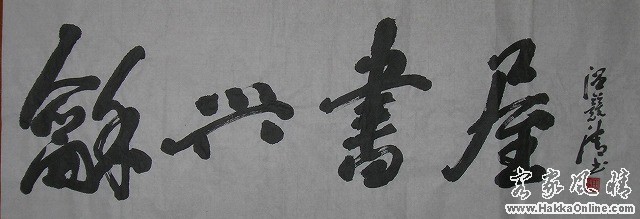 龢兴書屋
客家风情
www.HakkaOnline.com